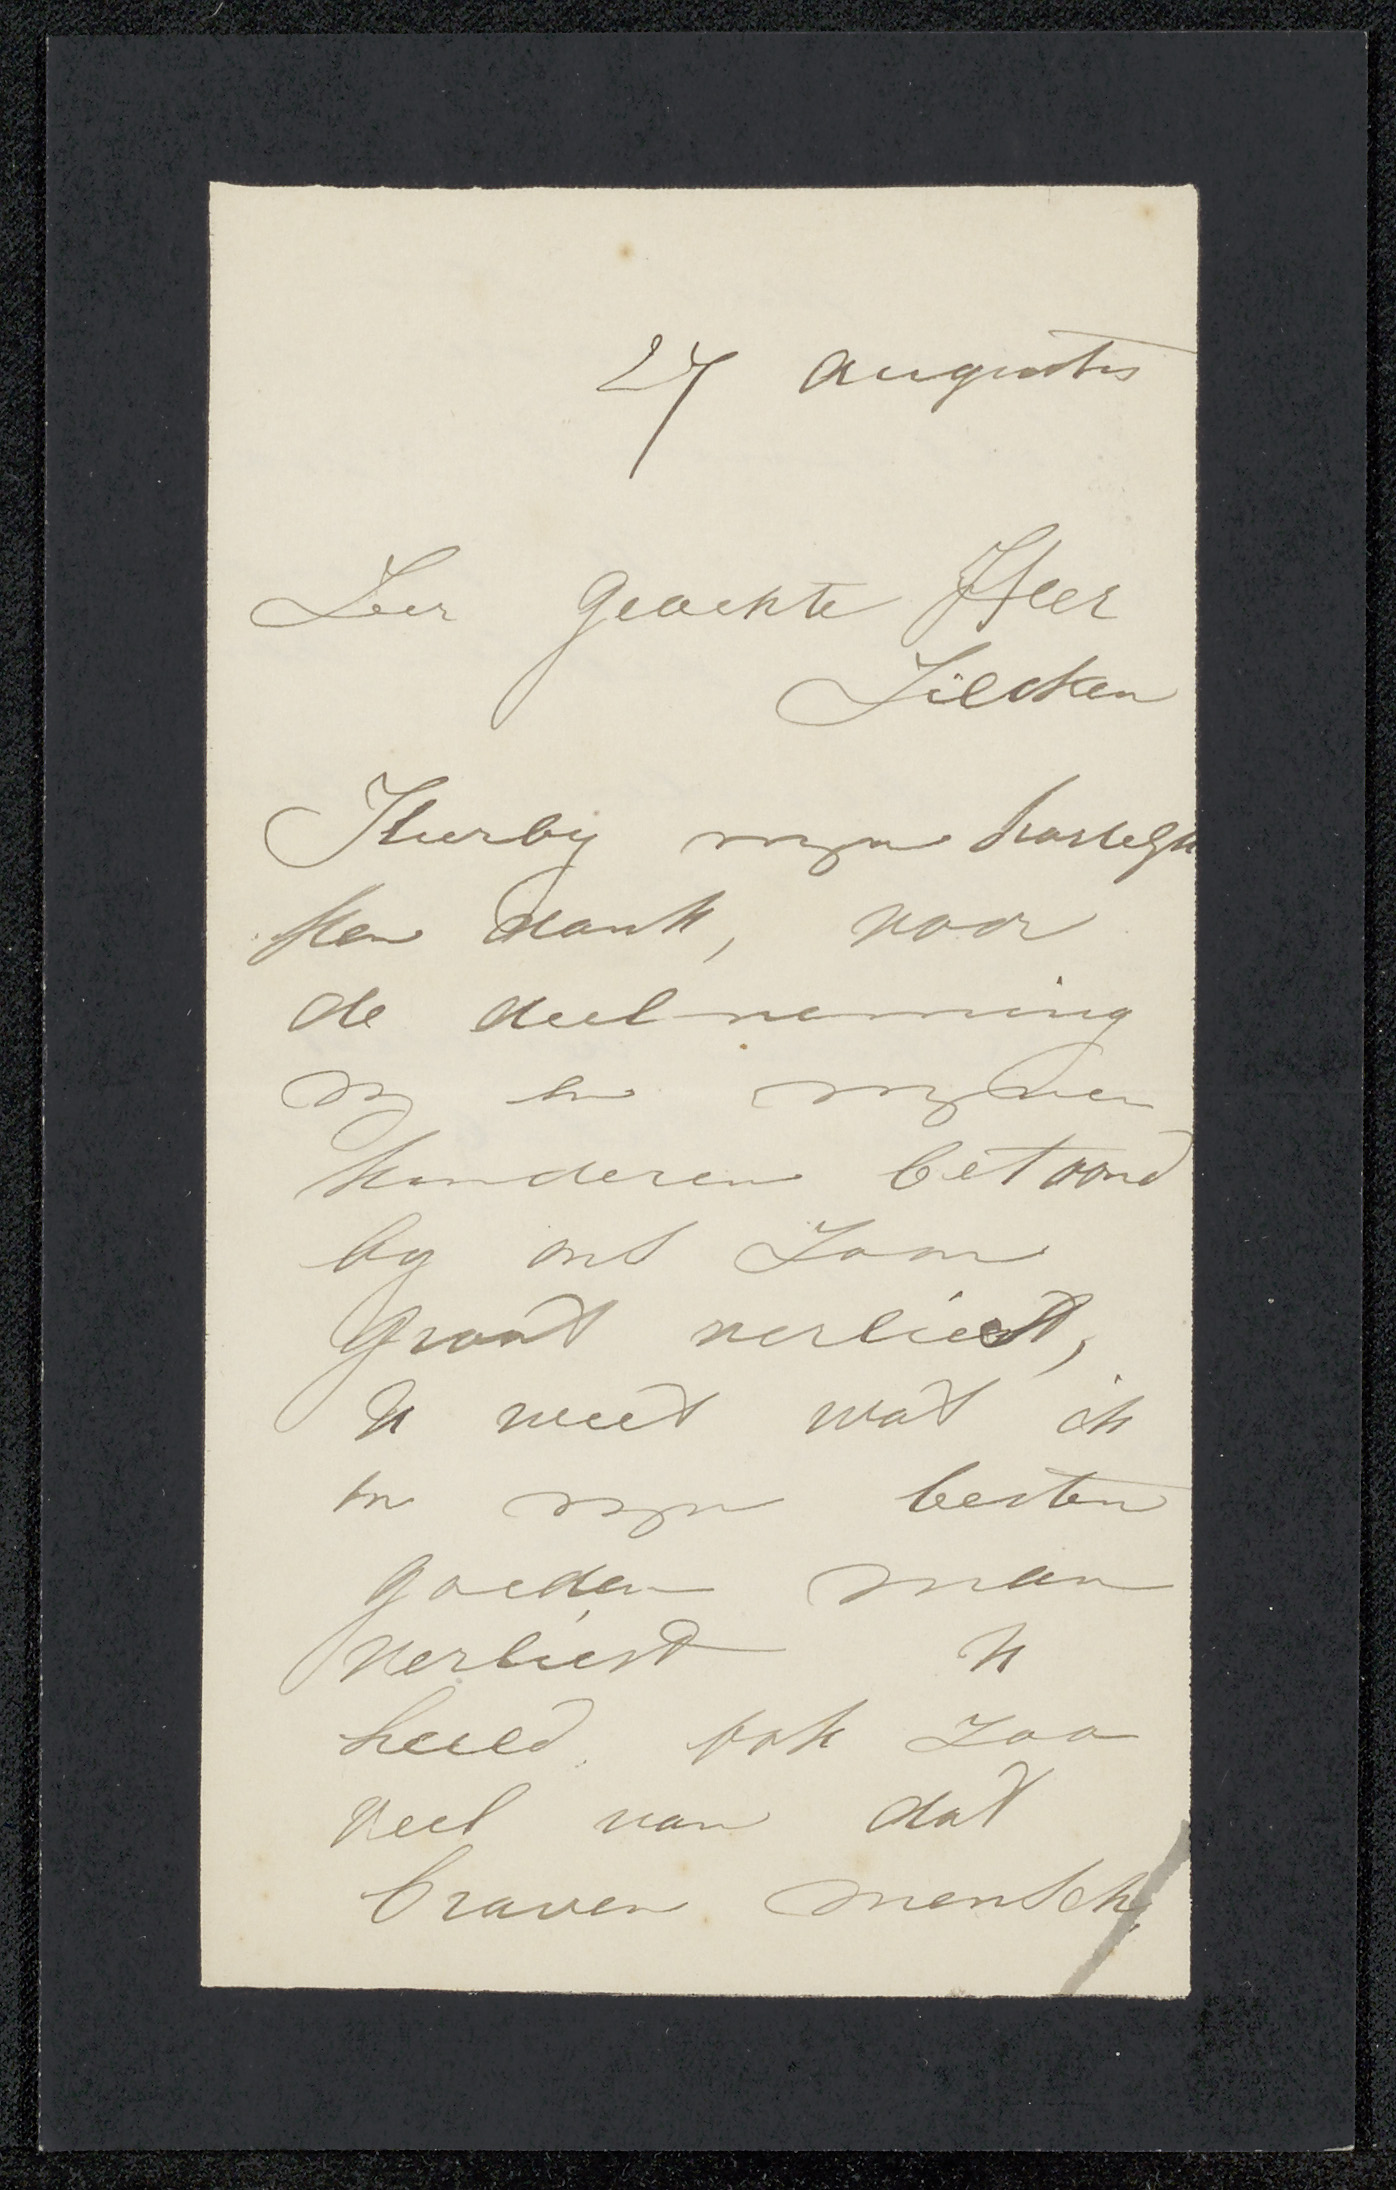 27 Augustus
Zeer geachte Heer
Zilcken
Hierby mijn hartelij
ken dank, voor
de deelneming
mij en mijnen
kinderen betoond
by ons zoon
groot verliest,
U weet wat ik
in mijn besten
goeden man
verliest U
hield ook zoo
veel van dat
braven mensch,